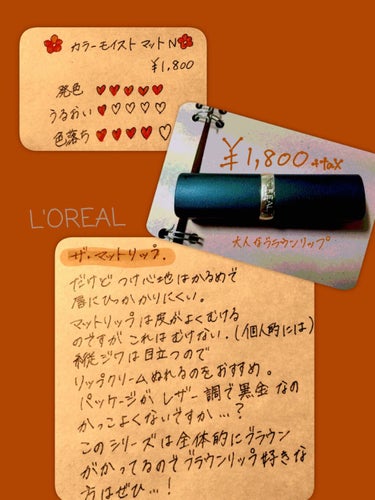 カラーモイスト マット N
¥1,800
発色 ♥♥♥♥♥
うるおい ♥♡♡♡♡
色落ち ♥♥♥♥♡
¥1,800+tax
L'OREAL
大人なブラウンリップ
ザ・マットリップ。
だけど つけ心地はかるめで
唇にひっかかりにくい。
マットリップは皮がよくむける
のですが これはむけない。(個人的には)
縦ジワは目立つので
リップクリームぬれるのをおすすめ。
パッケージが レザー調で黒金なの
かっこよくないですか…?
このシリーズは全体的にブラウン
がかってるのでブラウンリップ好きな
方はぜひ…!
L'OREAL